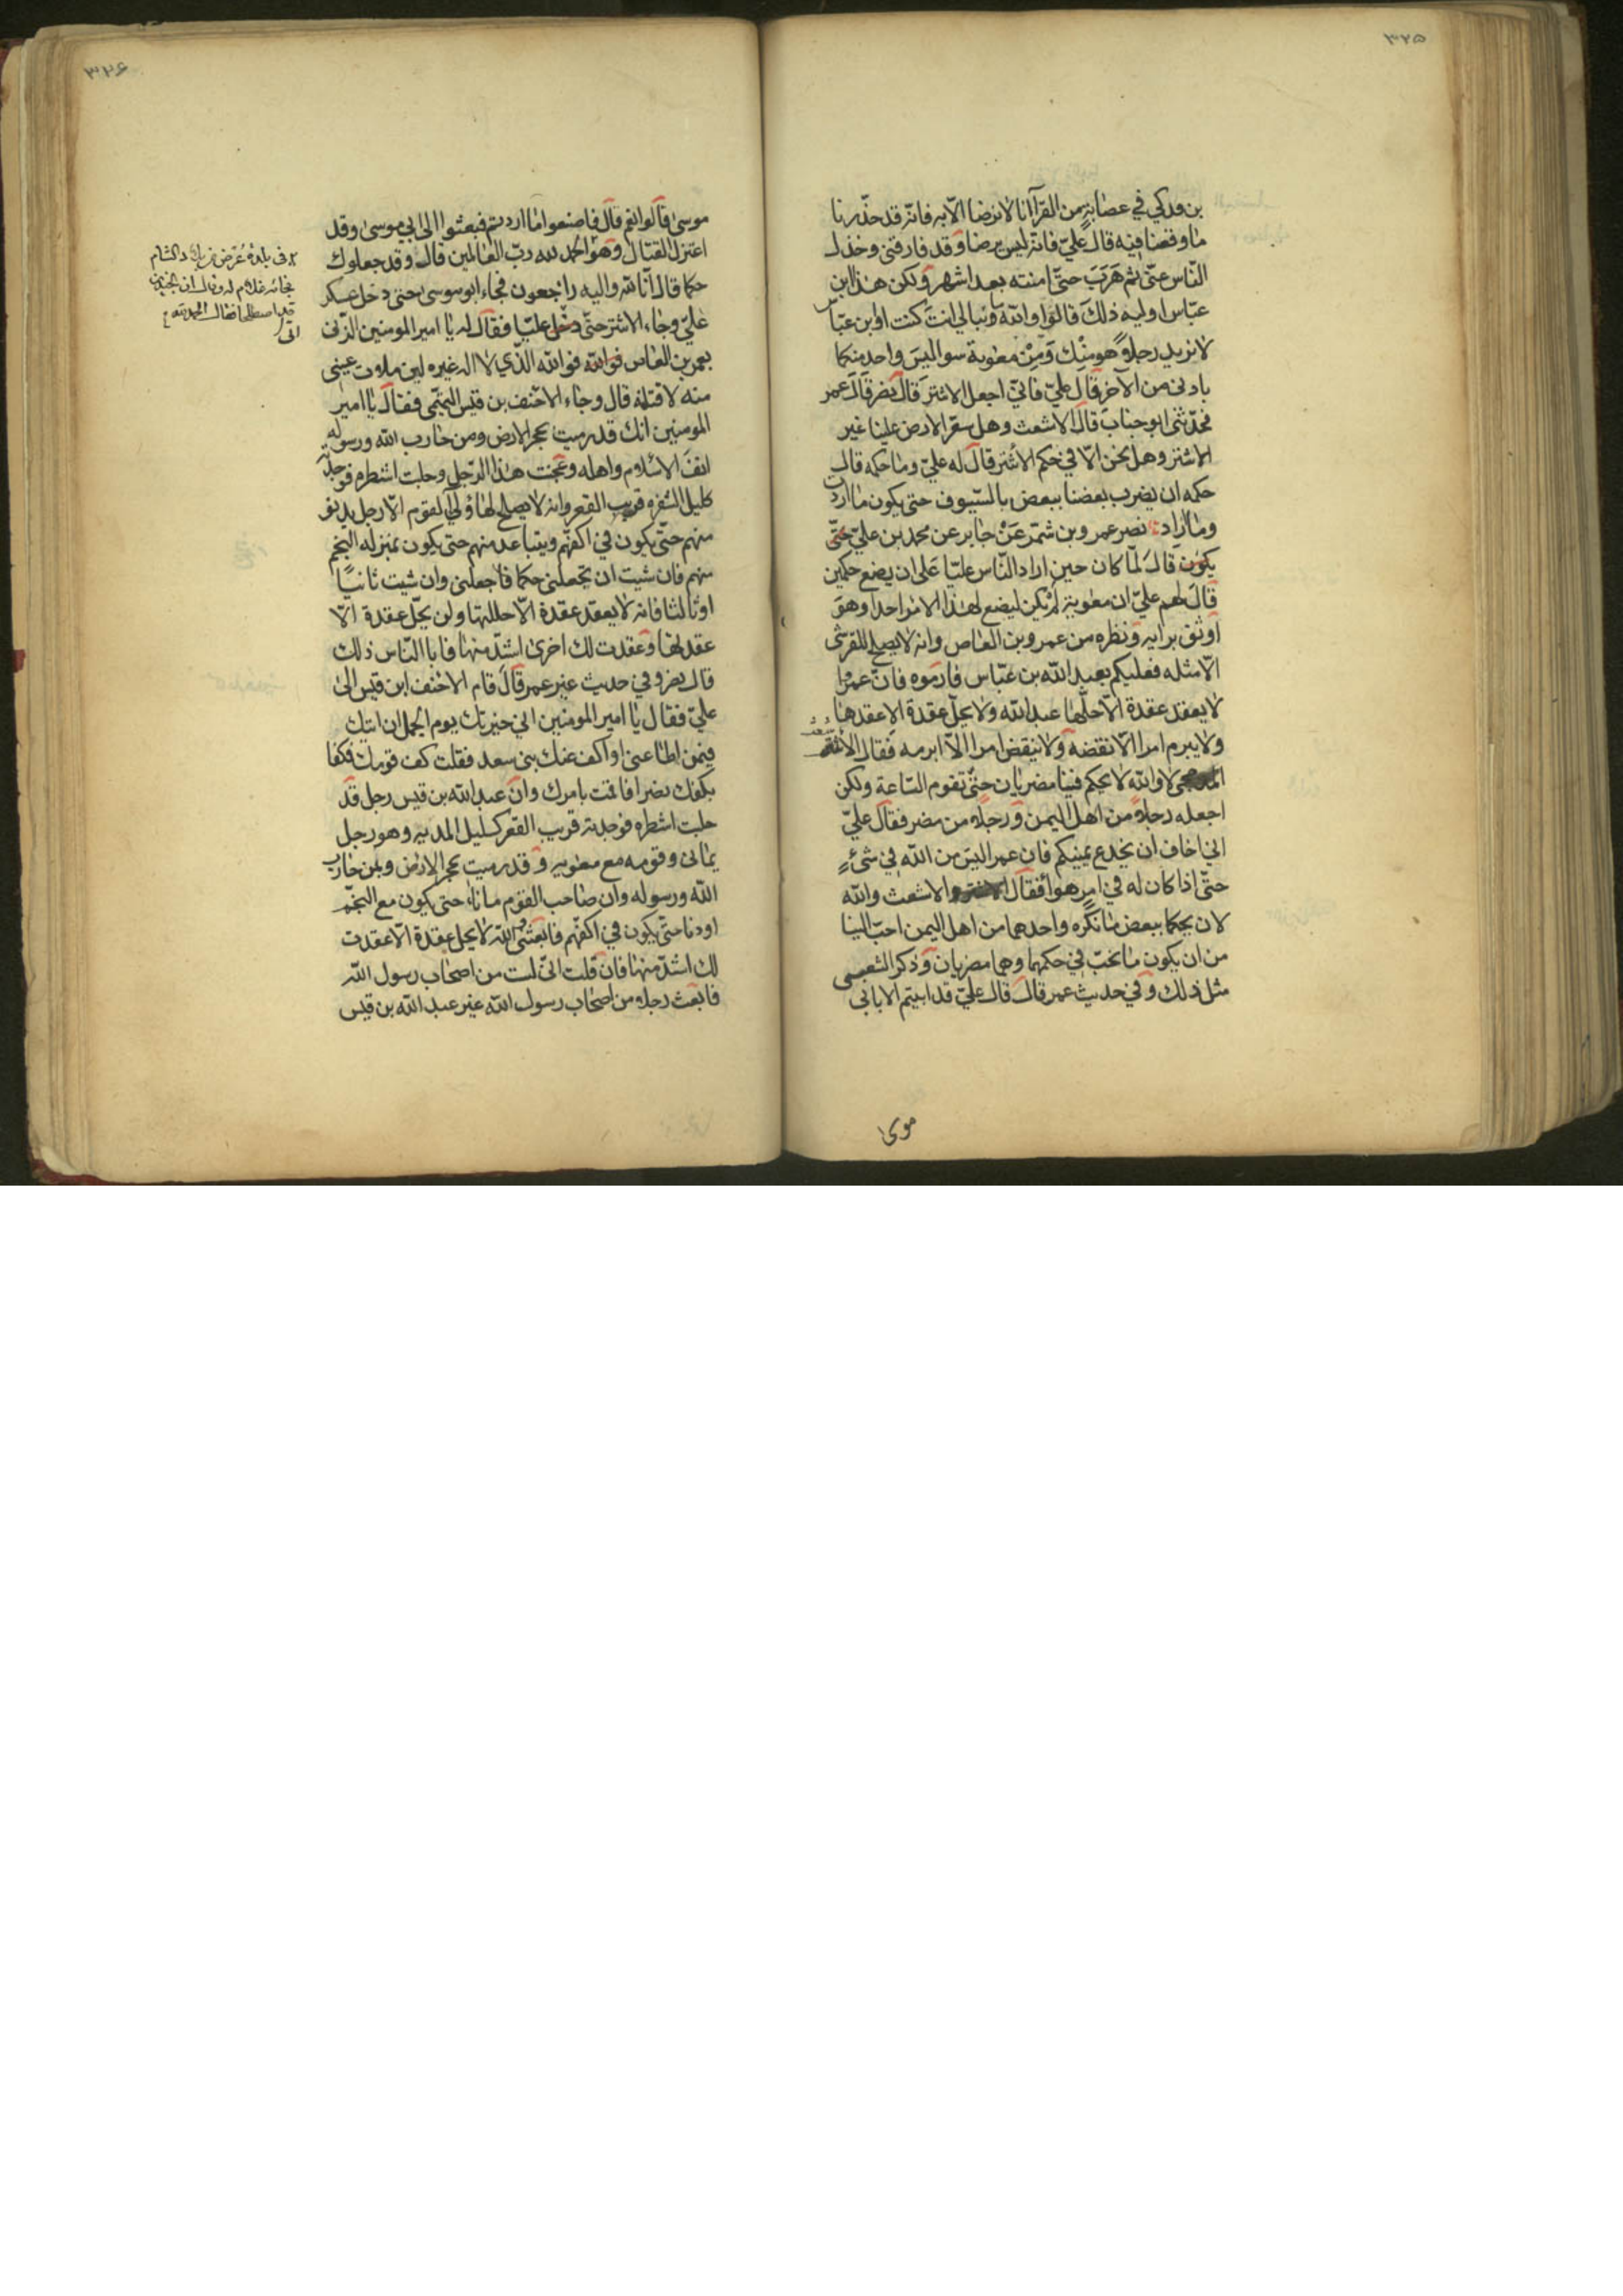 ٣٢٥
بن فدكي في عصابة من القرا انا لانرضا الا به فانه قد حذرنا
ما وقعنا فيه قال علي فانه ليس برضا وقد فارقني وخذل
الناس عني ثم هرب حتى امنته بعد اشهر ولكن هذا ابن
عباس اوليه ذلك قالوا والله ما نبالي انت كنت او ابن عباس
لا نريد رجلا هو منك ومن معوية سوا ليس واحد منكما
بادنى من الآخر قال علي فاني اجعل الاشتر قال نصر قال عمر
فحدثني ابو جناب قال قال الاشعث وهل سعر الارض علينا غير
الاشتر وهل نحن الا في حكم الاشتر قال له علي وما حكمه قال
حكمه ان يضرب بعضنا ببعض بالسيوف حتى يكون ما اردت
وما اراد نصر عمرو بن شمر عن جابر عن محمد بن علي حتى
يكون قال لما كان حين اراد الناس عليا على ان يضع حكمين
قال لهم علي ان معوية لم يكن ليضع لهذا الامر احدا وهو
اوثق برايه ونظره من عمرو بن العاص وانه لا يصلح للقرشي
الا مثله فعليكم بعبد الله بن عباس فارموه فان عمروا
لا يعقد عقدة الا حلها عبد الله ولا يحل عقدة الا عقدها
ولا يبرم امرا الا نقضه ولا ينقض امرا الا ابرمه فقال الاشعث
لا والله لا يحكم فينا مضريان حتى تقوم الساعة ولكن
اجعله رجلا من اهل اليمن ورجلا من مضر فقال علي
اني اخاف ان يخدع يمينكم فان عمرا ليس من الله في شيء
حتى اذا كان له في امر هوا فقال الاشعث والله
لان يحكما ببعض ما نكره واحدهما من اهل اليمن احب الينا
من ان يكون ما نحب في حكمهما وهما مضريان وذكر الشعبى
مثل ذلك وفي حديث عمر قال قال علي قد ابيتم الا ابا بى
موسى
٣٢٦
موسى قالوا نعم قال فاصنعوا ما اردتم فبعثوا الى ابي موسى وقد
اعتزل القتال وهو الحمد لله رب العالمين قال وقد جعلوك
حكما قال انا لله واليه راجعون فجاء ابو موسى حتى دخل عسكر
علي وجاء الاشتر حتى دخل عليا فقال له يا امير المومنين الزنى
بعمر بن العاص فوالله فوالله الذي لا اله غيره لين ملات عيني
منه لاقتلنه قال وجاء الاحنف بن قيس التميمي فقال يا امير
المومنين انك قد رميت بحجر الارض ومن حارب الله ورسوله
انف الاسلام واهله وعجنت هذا الرجل وحلبت اشطره فوجدته
كليل الشفره قريب القعر وانه لا يصلح لهاؤلي القوم الا رجل يدنو
منهم حتى يكون في اكفهم ويتباعد منهم حتى يكون بمنزله النجم
منهم فان شيت ان تجعلني حكما فاجعلني وان شيت ثانيا
او ثالثا فانه لا يعقد عقدة الا حللتها ولن يحل عقدة الا
عقدتها وعقدت لك اخرى اشد منها فابا الناس ذلك
قال نصر وفي حديث غير عمر قال قام الاحنف ابن قيس الى
علي فقال يا امير المومنين اني خيرتك يوم الجمل ان اتيك
فيمن اطاعنى او اكف عنك بني سعد فقلت كف قومك فكفا
بكفك نصرا فاقمت بامرك وان عبد الله بن قيس رجل قد
حلبت اشطره فوجدته قريب القعر كليل المديه وهو رجل
يمانى وقومه مع معويه وقد رميت بحجر الارض وبمن حارب
الله ورسوله وان صاحب القوم من ناء حتى يكون مع النجم
او دنا حتى يكون في اكفهم فابعثنى الله لا يحل عقدة الا عقدت
لك اشد منها فان قلت اني لست من اصحاب رسول الله
فابعث رجلا من اصحاب رسول الله غير عبد الله بن قيس
بالشام
فجائه غلام له وقال ان
قد اصطلحا فقال الحمد